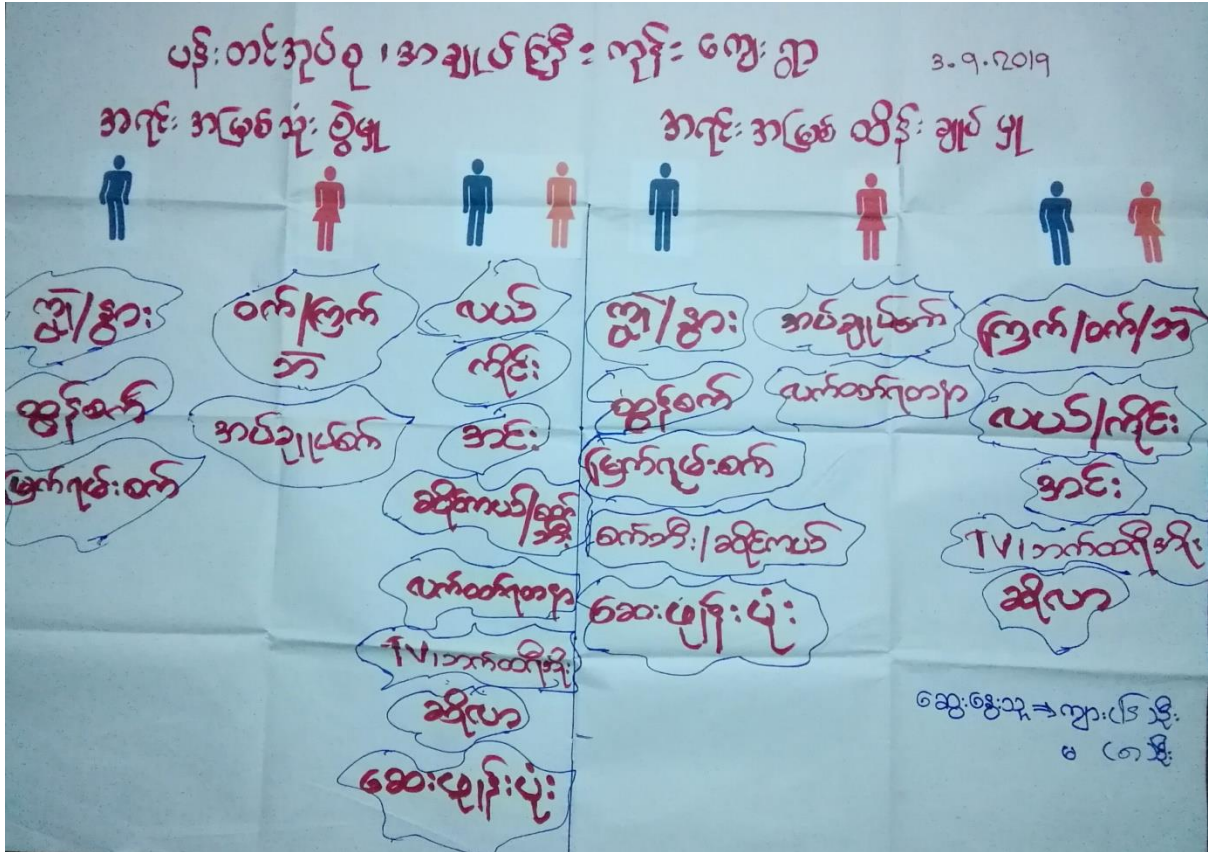 ပန်းတင်အုပ်စု ၊ အချုပ်ကြီးကုန်းကျေးရွာ
3.9.2019
အရင်းအမြစ်သုံးစွဲမှု
အရင်းအမြစ်ထိန်းချုပ်မှု
ကျွဲ/နွား
ထွန်စက်
မြက်ရမ်းစက်
ဝက်/ကြက်
ဘဲ
အပ်ချုပ်စက်
လယ်
ကိုင်း
အင်း
ဆိုင်ကယ်/စက်
ဘီး
လက်ဝတ်ရတနာ
TV၊ဘက်ထရီအိုး
ဆိုလာ
ဆေးဖျန်းပုံး
ကျွဲ/နွား
ထွန်စက်
မြက်ရမ်းစက်
စက်ဘီး/ဆိုင်ကယ်
ဆေးဖျန်းပုံး
အပ်ချုပ်စက်
လက်ဝတ်ရတနာ
ကြက်/ဝက်/ဘဲ
လယ်/ကိုင်း
အင်း
TV၊ဘက်ထရီအိုး
ဆိုလာ
ဆွေးနွေးသူ ⇒ ကျား
မ